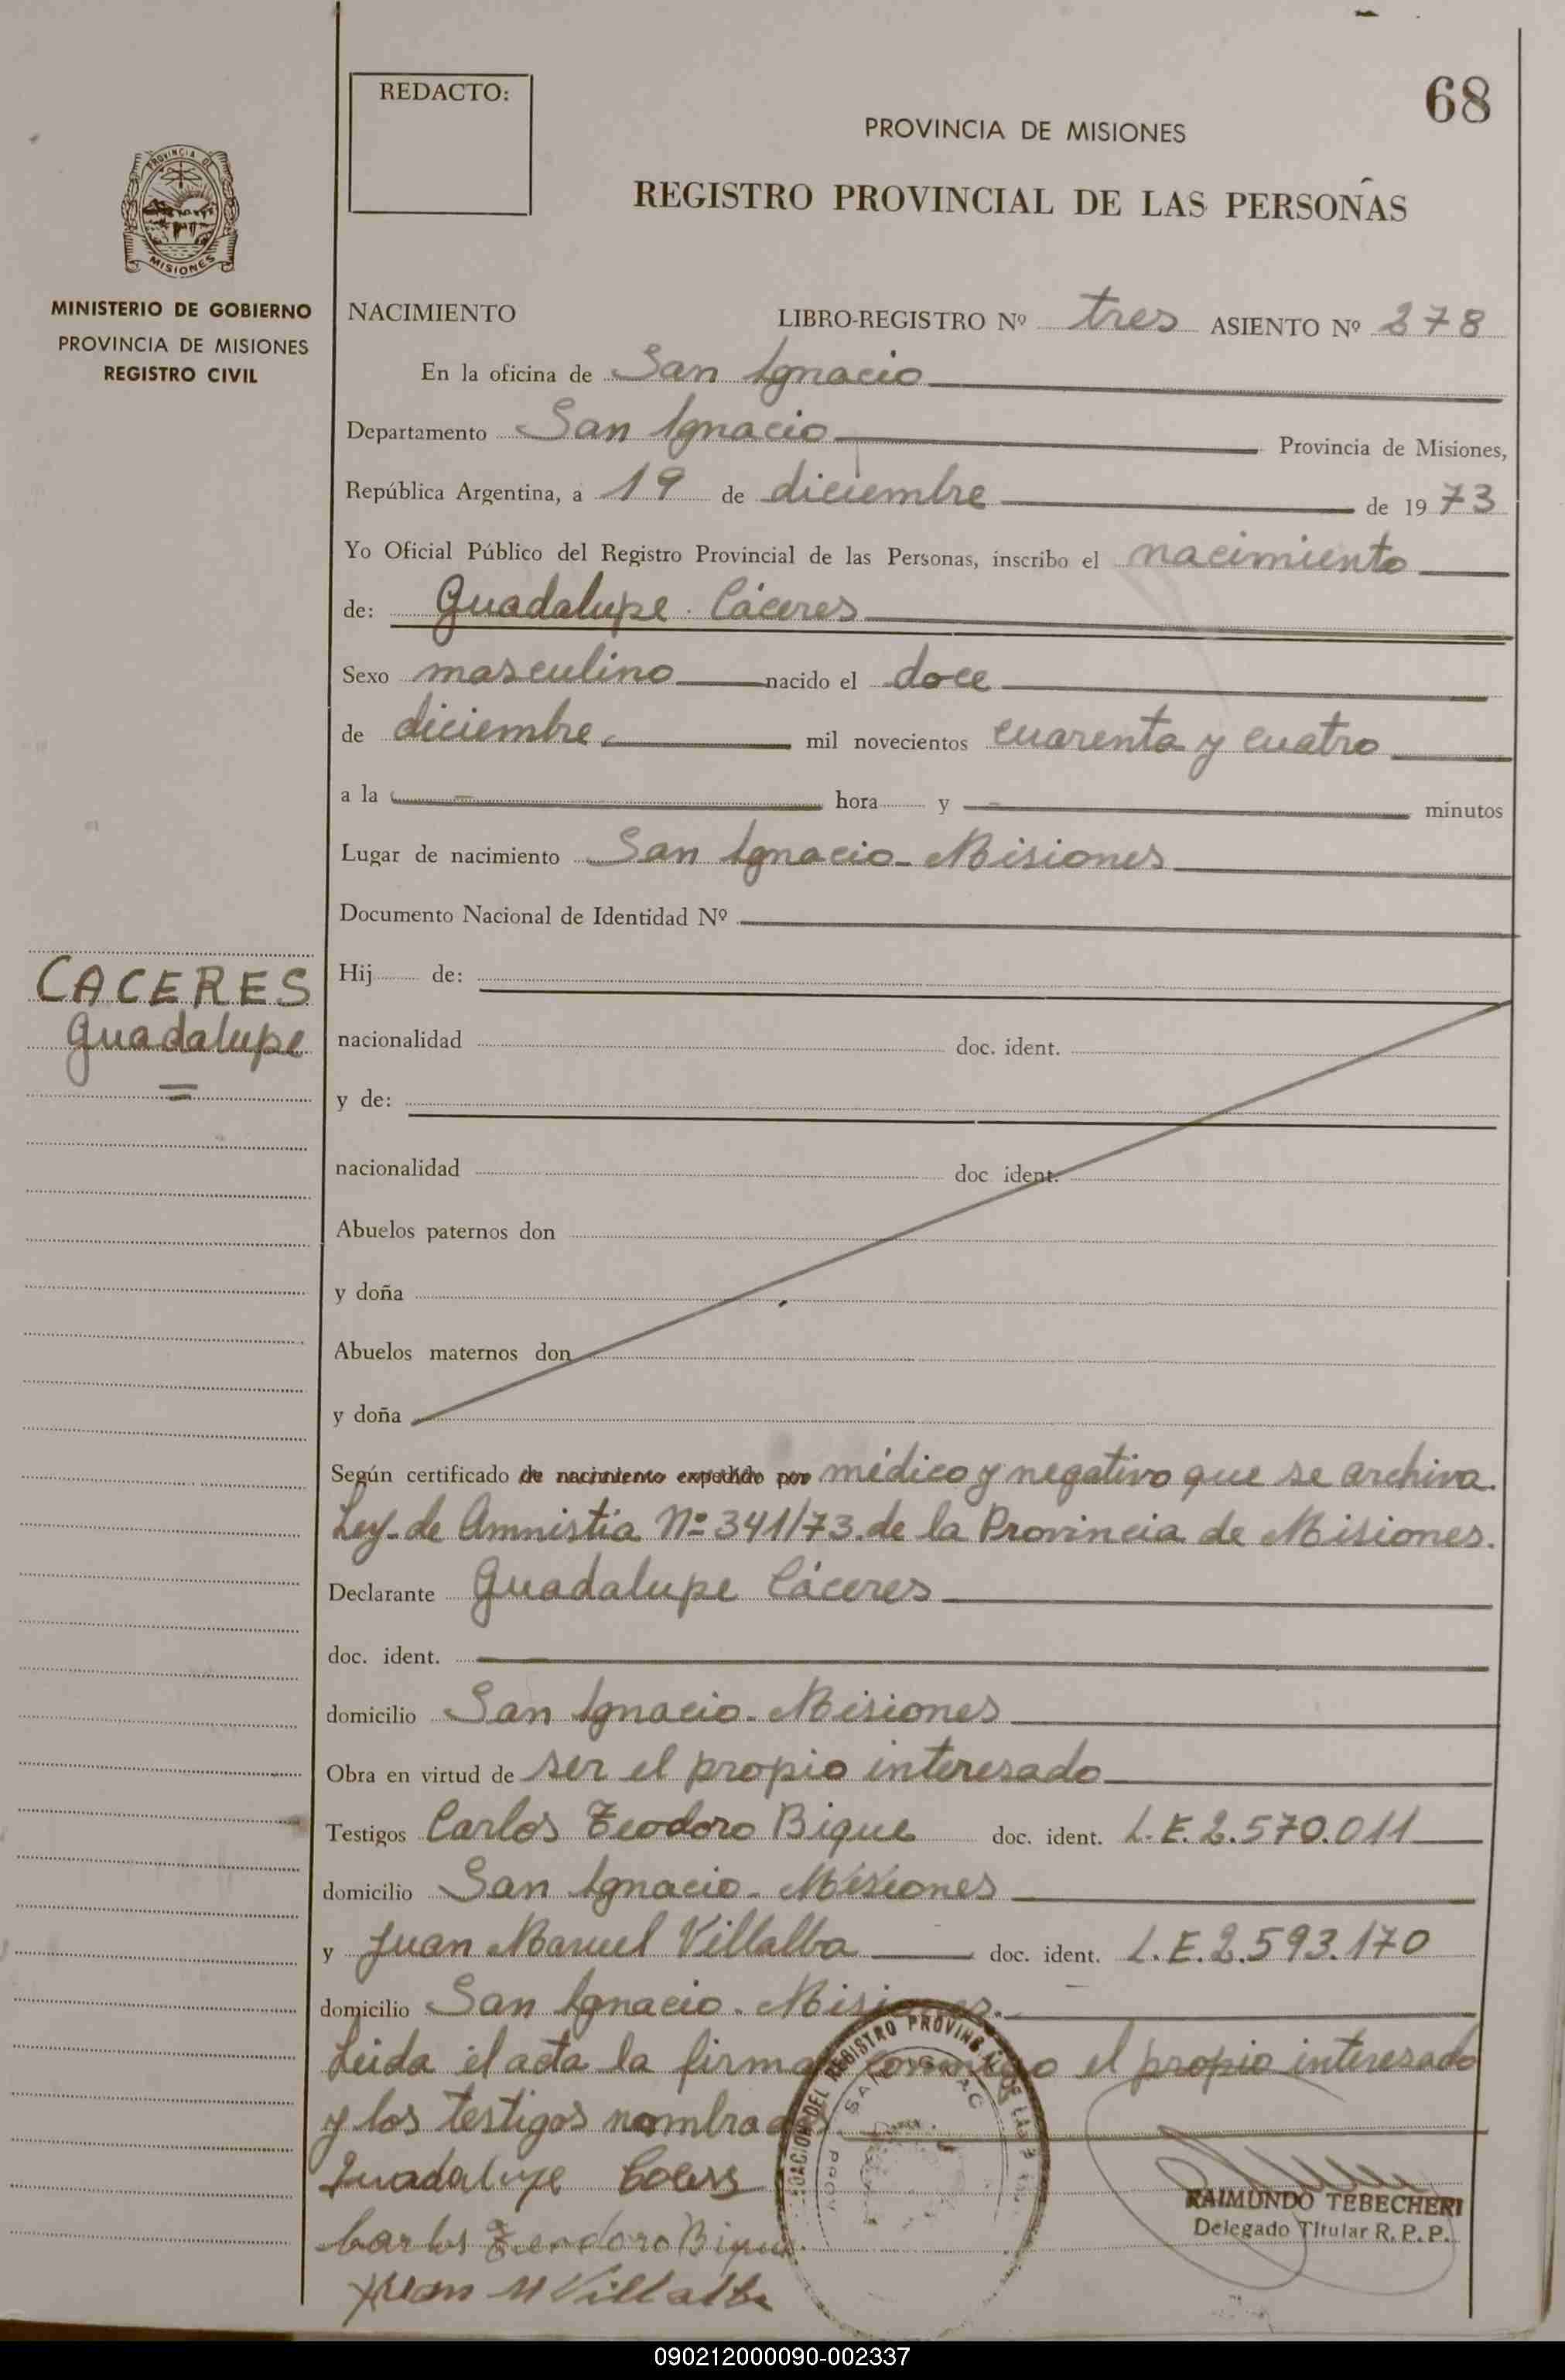 68
REDACTO:
PROVINCIA DE MISIONES
REGISTRO PROVINCIAL DE LAS PERSONAS
PROVINCIA DE
MISIONES
MINISTERIO DE GOBIERNO
PROVINCIA DE MISIONES
REGISTRO CIVIL
NACIMIENTO LIBRO-REGISTRO Nº tres ASIENTO Nº 278
En la oficina de San Ignacio
Departamento San Ignacio Provincia de Misiones,
República Argentina, a 19 de diciembre de 1973
Yo Oficial Público del Registro Provincial de las Personas, inscribo el nacimiento
de: Guadalupe Cáceres
Sexo masculino nacido el doce
de diciembre mil novecientos cuarenta y cuatro
a la hora y minutos
Lugar de nacimiento San Ignacio - Misiones
Documento Nacional de Identidad Nº
CACERES
Guadalupe
Hij de:
nacionalidad doc. ident.
y de:
nacionalidad doc ident.
Abuelos paternos don
y doña
Abuelos maternos don
y doña
Según certificado de nacimiento expedido por médico y negativo que se archiva.
Ley de Amnistia Nº 341/73 de la Provincia de Misiones.
Declarante Guadalupe Cáceres
doc. ident.
domicilio San Ignacio - Misiones
Obra en virtud de ser el propio interesado
Testigos Carlos Teodoro Bique doc. ident. L.E. 2.570.011
domicilio San Ignacio - Misiones
y Juan Manuel Villalba doc. ident. L.E. 2.593.170
domicilio San Ignacio - Misiones.
Leida el acta la firman conmigo el propio interesado
y los testigos nombrados.
Guadalupe
Carlos Teodoro Bique
Juan M Villalba
RAIMUNDO TEBECHERI
Delegado Titular R.P.P.
090212000090-002337